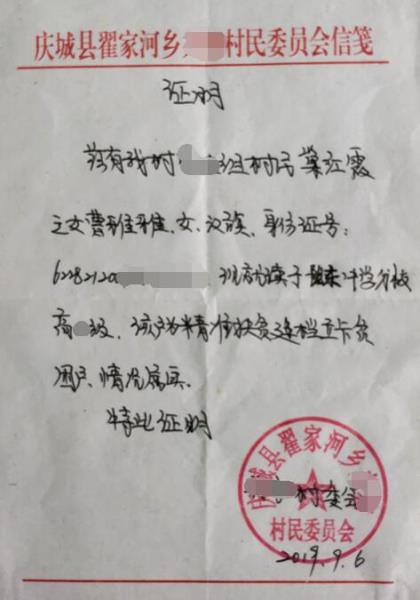 庆城县翟家河乡 村民委员会信笺
证明
兹有我村 组村民 江霞
之女费雅雅、女、汉族、身份证号:
622821200 现就读于 中学分校
高 级、该户为精准扶贫建档立卡贫
困户、情况属实。
特此证明
村委会
庆城县翟家河乡
村民委员会
2019.9.6